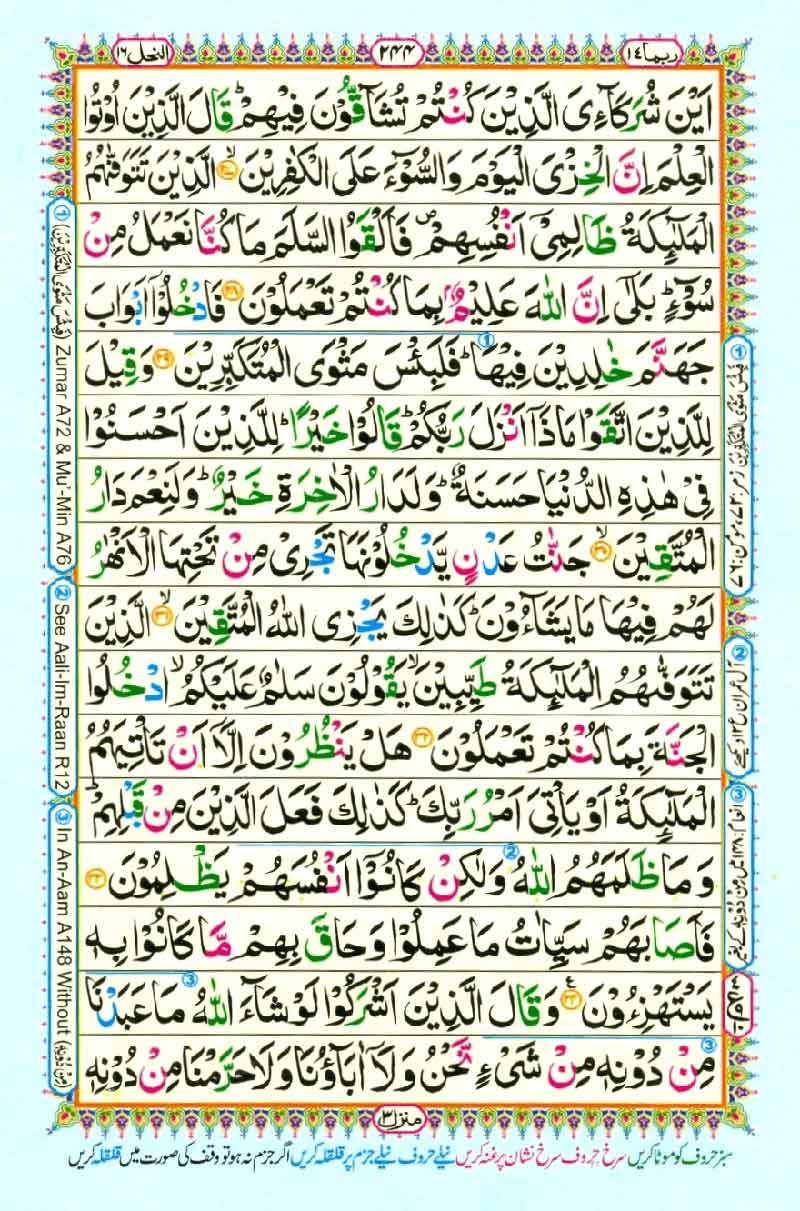 ربما ١٤
٢٤٤
النحل ١٦
اَيْنَ شُرَكَآءِىَ الَّذِيْنَ كُنْتُمْ تُشَآقُّوْنَ فِيْهِمْ ؕ قَالَ الَّذِيْنَ اُوْتُوا
الْعِلْمَ اِنَّ الْخِزْىَ الْيَوْمَ وَالسُّوْٓءَ عَلَى الْكٰفِرِيْنَ ۙ‏﴿۲۷﴾ الَّذِيْنَ تَتَوَفّٰٮهُمُ
الْمَلٰٓٮِٕكَةُ ظَالِمِىْۤ اَنْفُسِهِمْ ۪ فَاَلْقَوُا السَّلَمَ مَا كُنَّا نَعْمَلُ مِنْ
سُوْٓءٍ ؕ بَلٰٓى اِنَّ اللّٰهَ عَلِيْمٌۢ بِمَا كُنْتُمْ تَعْمَلُوْنَ ‏﴿۲۸﴾ فَادْخُلُوْۤا اَبْوَابَ
جَهَنَّمَ خٰلِدِيْنَ فِيْهَا ؕ فَلَبِئْسَ مَثْوَى الْمُتَكَبِّرِيْنَ ‏﴿۲۹﴾ وَقِيْلَ
لِلَّذِيْنَ اتَّقَوْا مَاذَاۤ اَنْزَلَ رَبُّكُمْ ؕ قَالُوْا خَيْرًا ؕ لِلَّذِيْنَ اَحْسَنُوْا
فِىْ هٰذِهِ الدُّنْيَا حَسَنَةٌ ؕ وَلَدَارُ الْاٰخِرَةِ خَيْرٌ ؕ وَلَنِعْمَ دَارُ
الْمُتَّقِيْنَ ۙ‏﴿۳۰﴾ جَنّٰتُ عَدْنٍ يَّدْخُلُوْنَهَا تَجْرِىْ مِنْ تَحْتِهَا الْاَنْهٰرُ
لَهُمْ فِيْهَا مَا يَشَآءُوْنَ ؕ كَذٰلِكَ يَجْزِى اللّٰهُ الْمُتَّقِيْنَ ۙ‏﴿۳۱﴾ الَّذِيْنَ
تَتَوَفّٰٮهُمُ الْمَلٰٓٮِٕكَةُ طَيِّبِيْنَ ۙ يَقُوْلُوْنَ سَلٰمٌ عَلَيْكُمُ ۙ ادْخُلُوا
الْجَنَّةَ بِمَا كُنْتُمْ تَعْمَلُوْنَ ‏﴿۳۲﴾ هَلْ يَنْظُرُوْنَ اِلَّاۤ اَنْ تَاْتِيَهُمُ
الْمَلٰٓٮِٕكَةُ اَوْ يَاْتِىَ اَمْرُ رَبِّكَ ؕ كَذٰلِكَ فَعَلَ الَّذِيْنَ مِنْ قَبْلِهِمْ ؕ
وَمَا ظَلَمَهُمُ اللّٰهُ وَلٰكِنْ كَانُوْۤا اَنْفُسَهُمْ يَظْلِمُوْنَ ‏﴿۳۳﴾
فَاَصَابَهُمْ سَيِّاٰتُ مَا عَمِلُوْا وَحَاقَ بِهِمْ مَّا كَانُوْا بِهٖ
يَسْتَهْزِءُوْنَ ‏﴿۳۴﴾ وَقَالَ الَّذِيْنَ اَشْرَكُوْا لَوْ شَآءَ اللّٰهُ مَا عَبَدْنَا
مِنْ دُوْنِهٖ مِنْ شَىْءٍ نَّحْنُ وَلَاۤ اٰبَآؤُنَا وَلَا حَرَّمْنَا مِنْ دُوْنِهٖ
منزل ٣
سبز حروف کو موٹا کریں سرخ حروف سرخ نشان پر غنہ کریں نیلے حروف نیلے جزم پر قلقلہ کریں اگر جزم نہ ہو تو وقف کی صورت میں قلقلہ کریں
① (فَبِئْسَ مَثْوَى الْمُتَكَبِّرِيْنَ) Zumar A72 & Mu'-Min A76
② See Aali-Im-Raan R12
③ In An-Aam A148 Without (مِنْ دُوْنِهٖ)
① فَبِئْسَ مَثْوَى الْمُتَكَبِّرِيْنَ زمر: ٧٢، مومن: ٧٦
② آل عمران ع ١٢ دیکھئے
③ انعام: ١٤٨ میں مِنْ دُوْنِهٖ کے بغیر